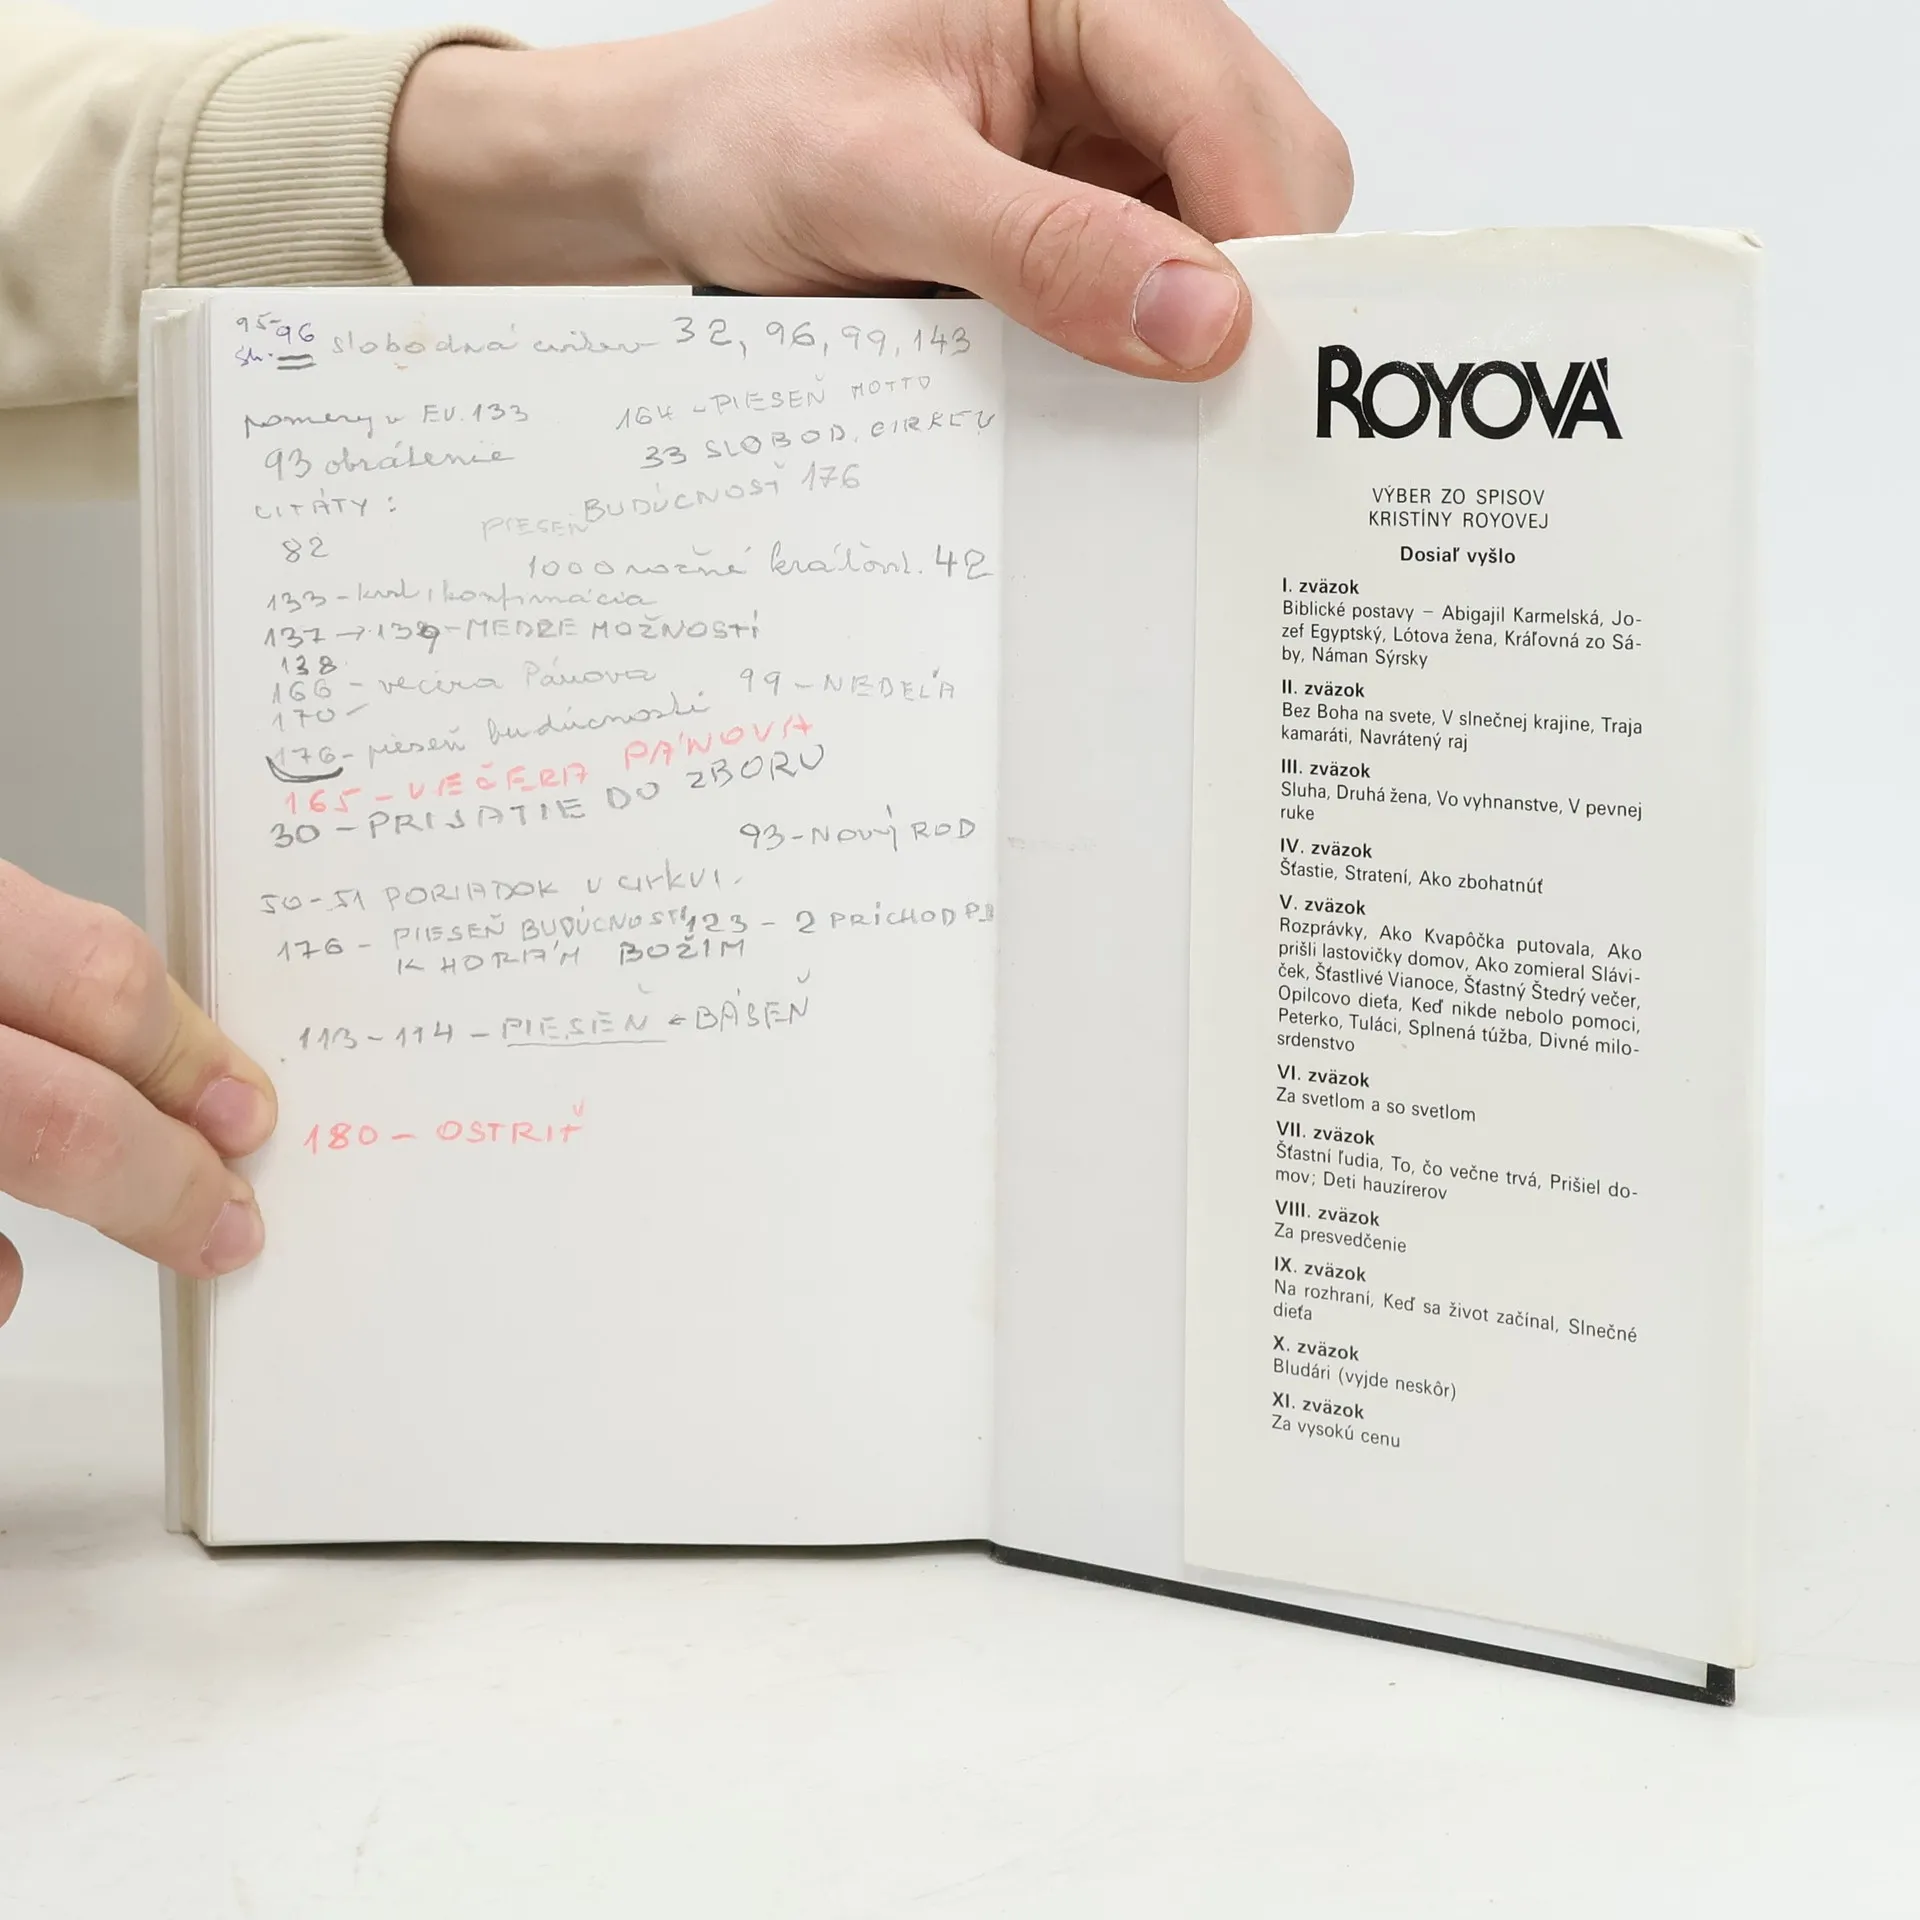 95-96
str. slobodná cirkev 32, 96, 99, 143
pomery v EV. 133
164 - PIESEŇ MOTTO
93 obrátenie
33 SLOBOD. CIRKEV
CITÁTY :
BUDÚCNOSŤ 176
PIESEŇ
82
1000 ročné kráľovl. 42
133 - krst i konfirmácia
137 → 139 - MEDZE MOŽNOSTÍ
138
166 - večera Pánova
99 - NEDEĽA
170 -
176 - pieseň budúcnosti
165 - VEČERA PÁNOVA
30 - PRIJATIE DO ZBORU
93 - NOVÝ ROD
50-51 PORIADOK V CIRKVI.
176 - PIESEŇ BUDÚCNOSTI
123 - 2 PRÍCHOD
K HORÁM BOŽÍM
113-114 - PIESEŇ - BÁSEŇ
180 - OSTRIŤ
ROYOVÁ
VÝBER ZO SPISOV
KRISTÍNY ROYOVEJ
Dosiaľ vyšlo
I. zväzok
Biblické postavy – Abigajil Karmelská, Jo-
zef Egyptský, Lótova žena, Kráľovná zo Sá-
by, Náman Sýrsky
II. zväzok
Bez Boha na svete, V slnečnej krajine, Traja
kamaráti, Navrátený raj
III. zväzok
Sluha, Druhá žena, Vo vyhnanstve, V pevnej
ruke
IV. zväzok
Šťastie, Stratení, Ako zbohatnúť
V. zväzok
Rozprávky, Ako Kvapôčka putovala, Ako
prišli lastovičky domov, Ako zomieral Slávi-
ček, Šťastlivé Vianoce, Šťastný Štedrý večer,
Opilcovo dieťa, Keď nikde nebolo pomoci,
Peterko, Tuláci, Splnená túžba, Divné milo-
srdenstvo
VI. zväzok
Za svetlom a so svetlom
VII. zväzok
Šťastní ľudia, To, čo večne trvá, Prišiel do-
mov; Deti hauzírerov
VIII. zväzok
Za presvedčenie
IX. zväzok
Na rozhraní, Keď sa život začínal, Slnečné
dieťa
X. zväzok
Bludári (vyjde neskôr)
XI. zväzok
Za vysokú cenu